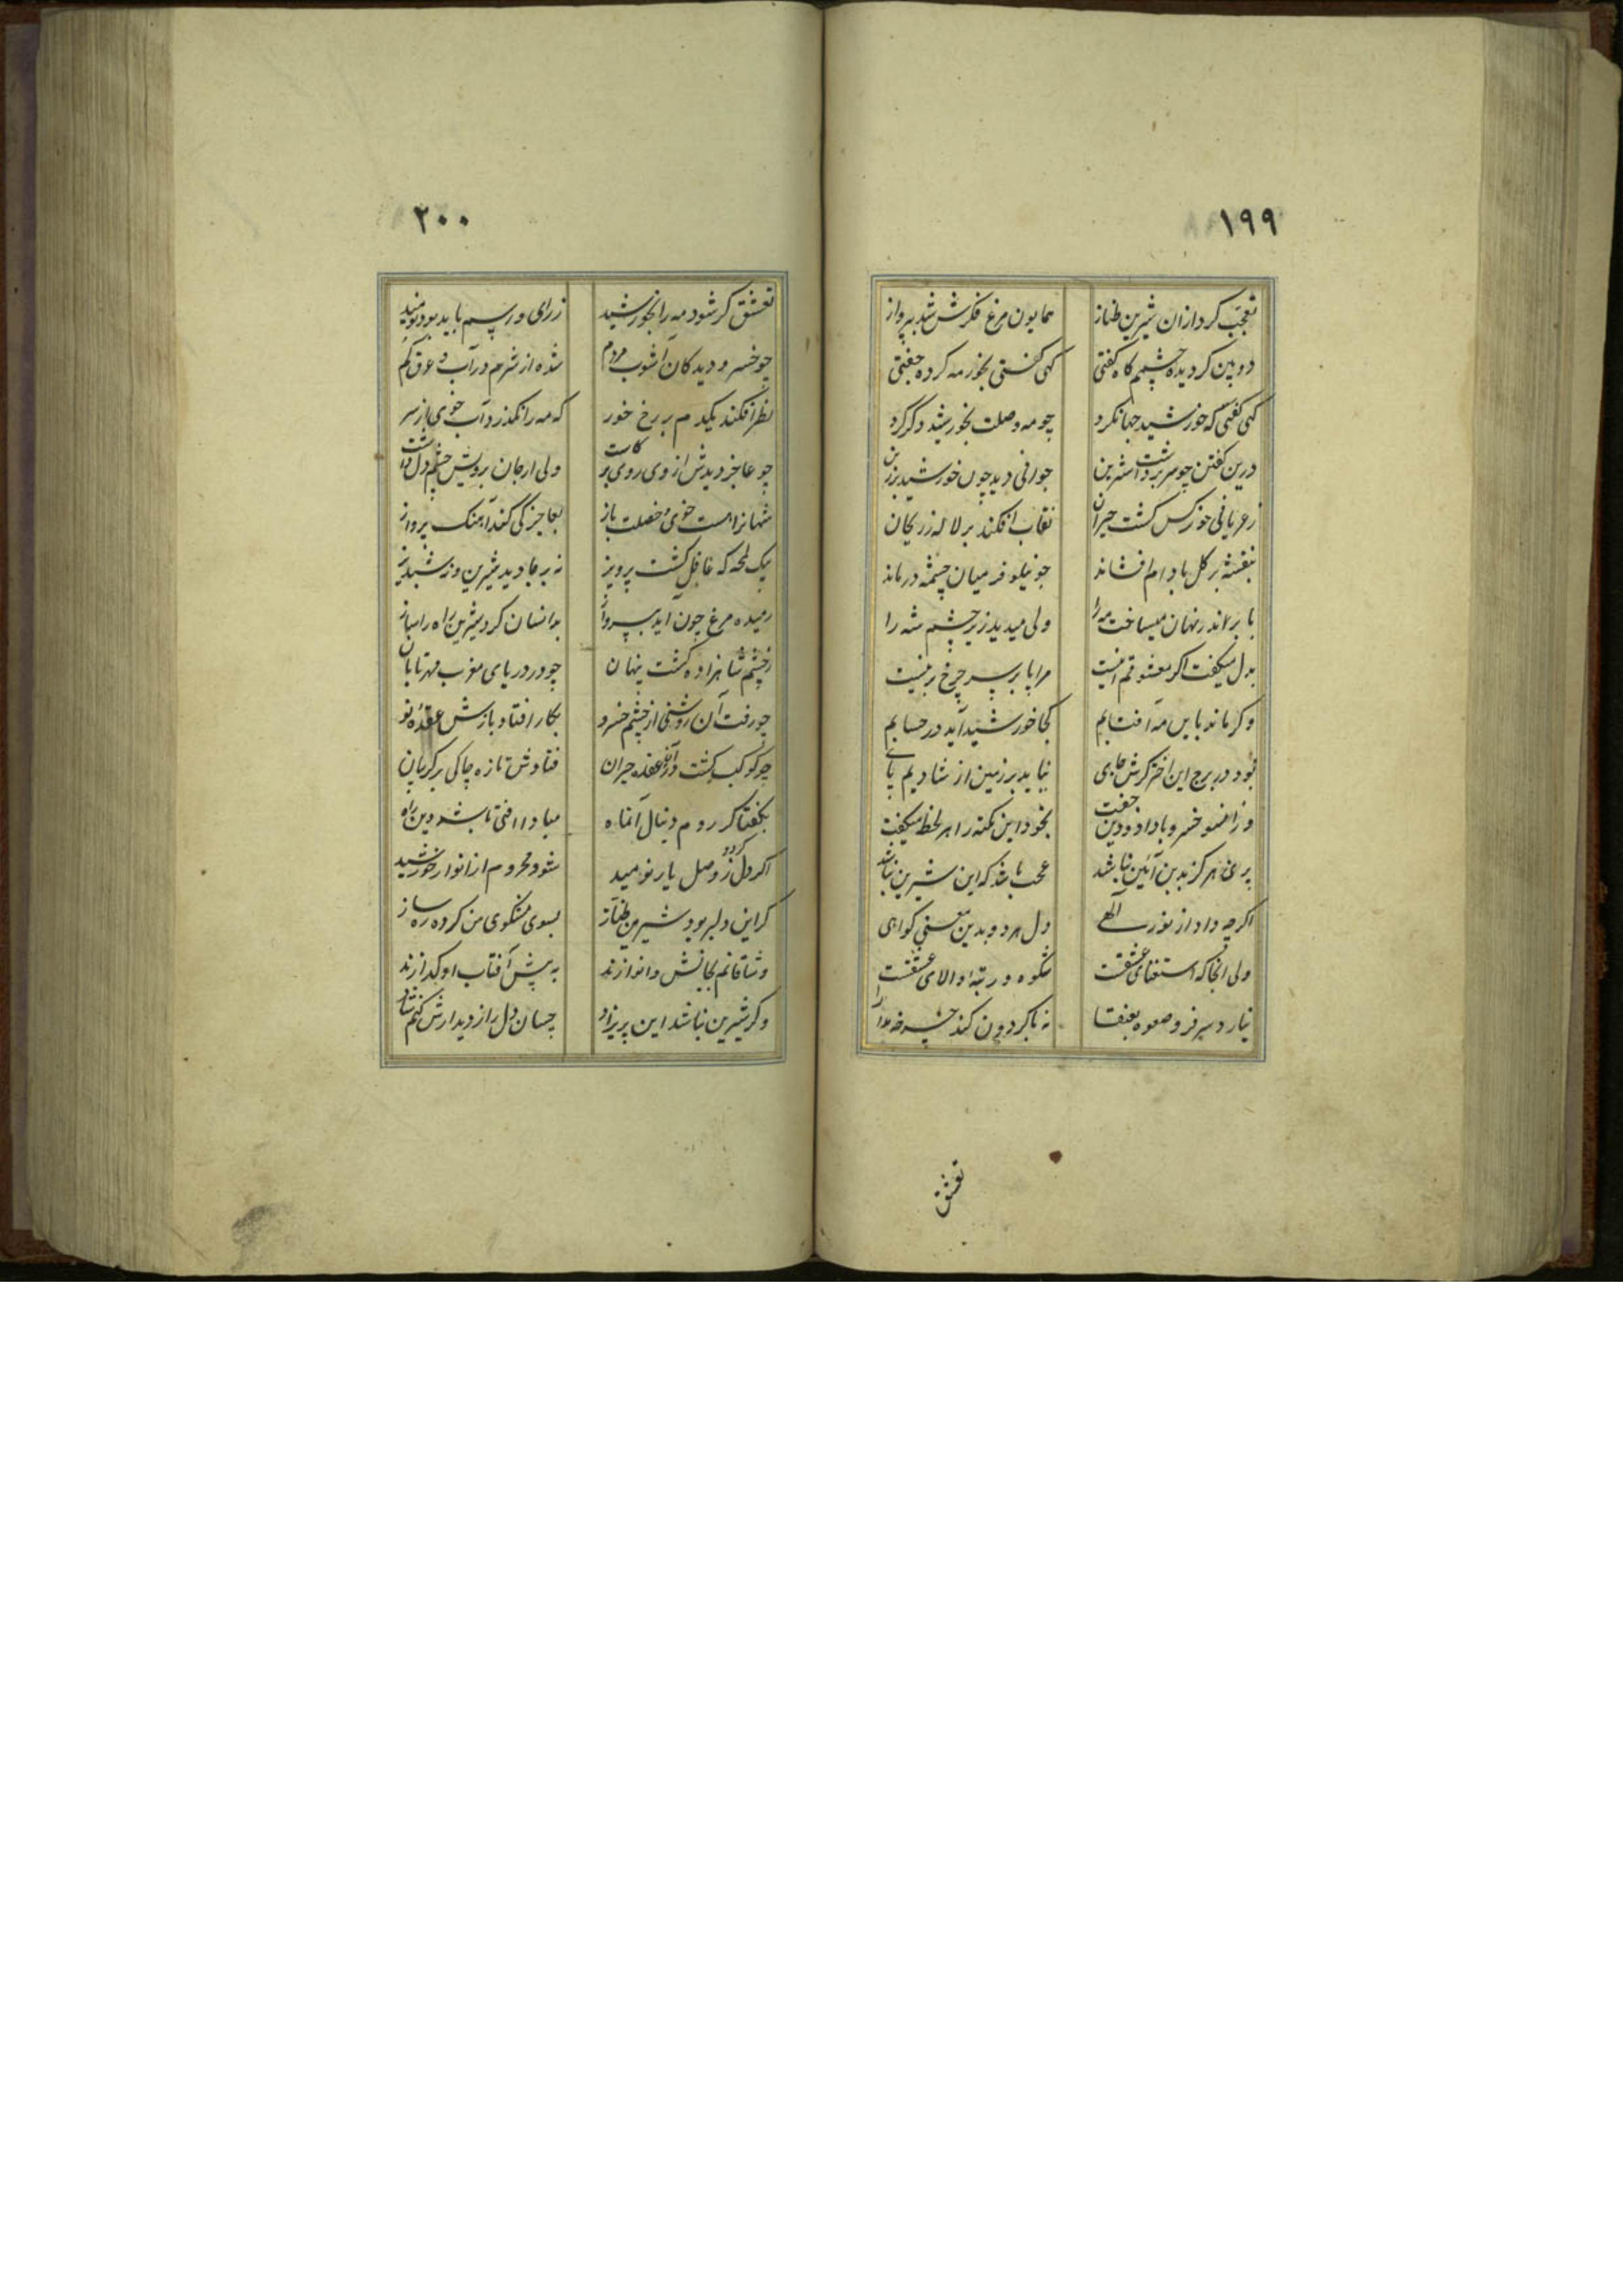 ١٩٩
تعجب کرد ازان شیرین طناز همایون مرغ فکرش شد بپرواز
دو بین کردیده چشمم کاه کفتی کهی کفتی بخور مه کرده جفتی
کهی کفتی که خورشید جهانکرد چو مه وصلت بخورشید دکر کرد
درین کفتن چو سر برداشت شیرین جوانی دید چون خورشید برزین
ز عریانی خور کس کشت حیران نقاب افکند بر لاله ز ریحان
بنفشه بر کل بادام افشاند چو نیلوفر میان چشمه درماند
بابر اندر نهان میساخت مه را ولی میدید زیر چشم شه را
بدل میکفت اکر معشوقم اینست مرا پا بر سر چرخ برینست
وکر ماند باین مه آفتابم کجا خورشید آید در حسابم
بود در برج این اختر کرش جای نیاید بر زمین از شادیم پای
وزانسو خسرو با داد و دین جفت بخود این نکته را هر لحظه میکفت
پری هرکز بدین آئین نباشد عجب باشد که این شیرین نباشد
اکرچه داد از نور الهی دل هر دو بدین معنی کواهی
ولی آنجا که استغنای عشقست شکوه و رتبه والای عشقست
نیارد سر فرو صعوه بعنقا نه با کردون کند
تعشق
٢٠٠
تعشق کر شود مه را بخورشید ز رای و رسم باید بود نومید
چو خسرو دید کان آشوب مردم شده از شرم در آب عرق کم
نظر افکند یکدم بر رخ خور که مه را نکذرد آب خوی از سر
چو عاجز دیدش از وی روی برکاشت ولی از جان برویش چشم دل داشت
شهانرا هست خوی و خصلت باز بعاجز کی کند آهنک پرواز
بیک لمحه که غافل کشت پرویز نه بر جا دید شیرین و نه شبدیز
رمیده مرغ چون آید بپرواز بدانسان کرد شیرین راه را ساز
ز چشم شاهزاده کشت پنهان چو در دریای مغرب مهر تابان
چو رفت آن روشنی از چشم خسرو بکار افتاد بازش عقدهٔ نو
چو کوکب کشت در آن عقده حیران فتادش تازه چاکی بر کریبان
بکفتا کر روم دنبال آنماه مبادا افتی باشد درین راه
اکر دل کردد ز وصل یار نومید شود محروم از انوار خورشید
کر این دلبر بود شیرین طناز بسوی مشکوی من کرده ره ساز
وشاقانم بجانش دلنوازند به پیش آفتاب او کدازند
وکر شیرین نباشد این پریزاد چسان دل را ز دیدارش کنم شاد